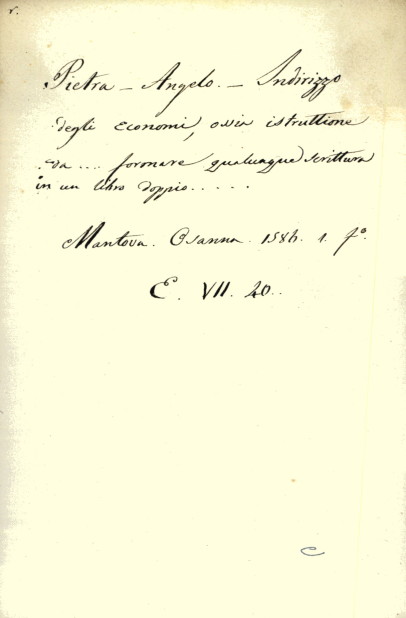 v.
Pietra – Angelo. – Indirizzo
degli economi, ossia istruttione
da... formare qualunque scrittura
in un libro doppio.....
Mantova. Osanna. 1586. 1. fº.
E. VII. 40..
C